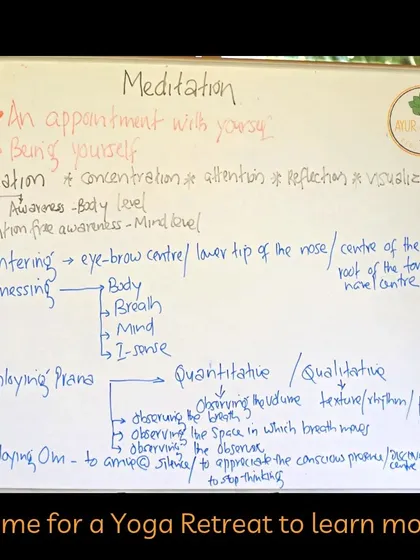 Meditation
An appointment with yourself
Being yourself
ation * concentration * attention * Reflection * visualiz
Awareness - Body level
tion free awareness - Mind level
ntering → eye-brow centre / lower tip of the nose / centre of the
root of the ton
navel centre
nessing → Body
→ Breath
→ Mind
→ I-sense
ploying Prana → Quantitative / Qualitative
Observing the volume texture/rhythm/
→ observing the breath
→ observing the space in which breath moves
→ observing the observer
laying Om - to arrive @ silence / to appreciate the conscious presence /
centre
to stop-thinking
AYUR
me for a Yoga Retreat to learn mo